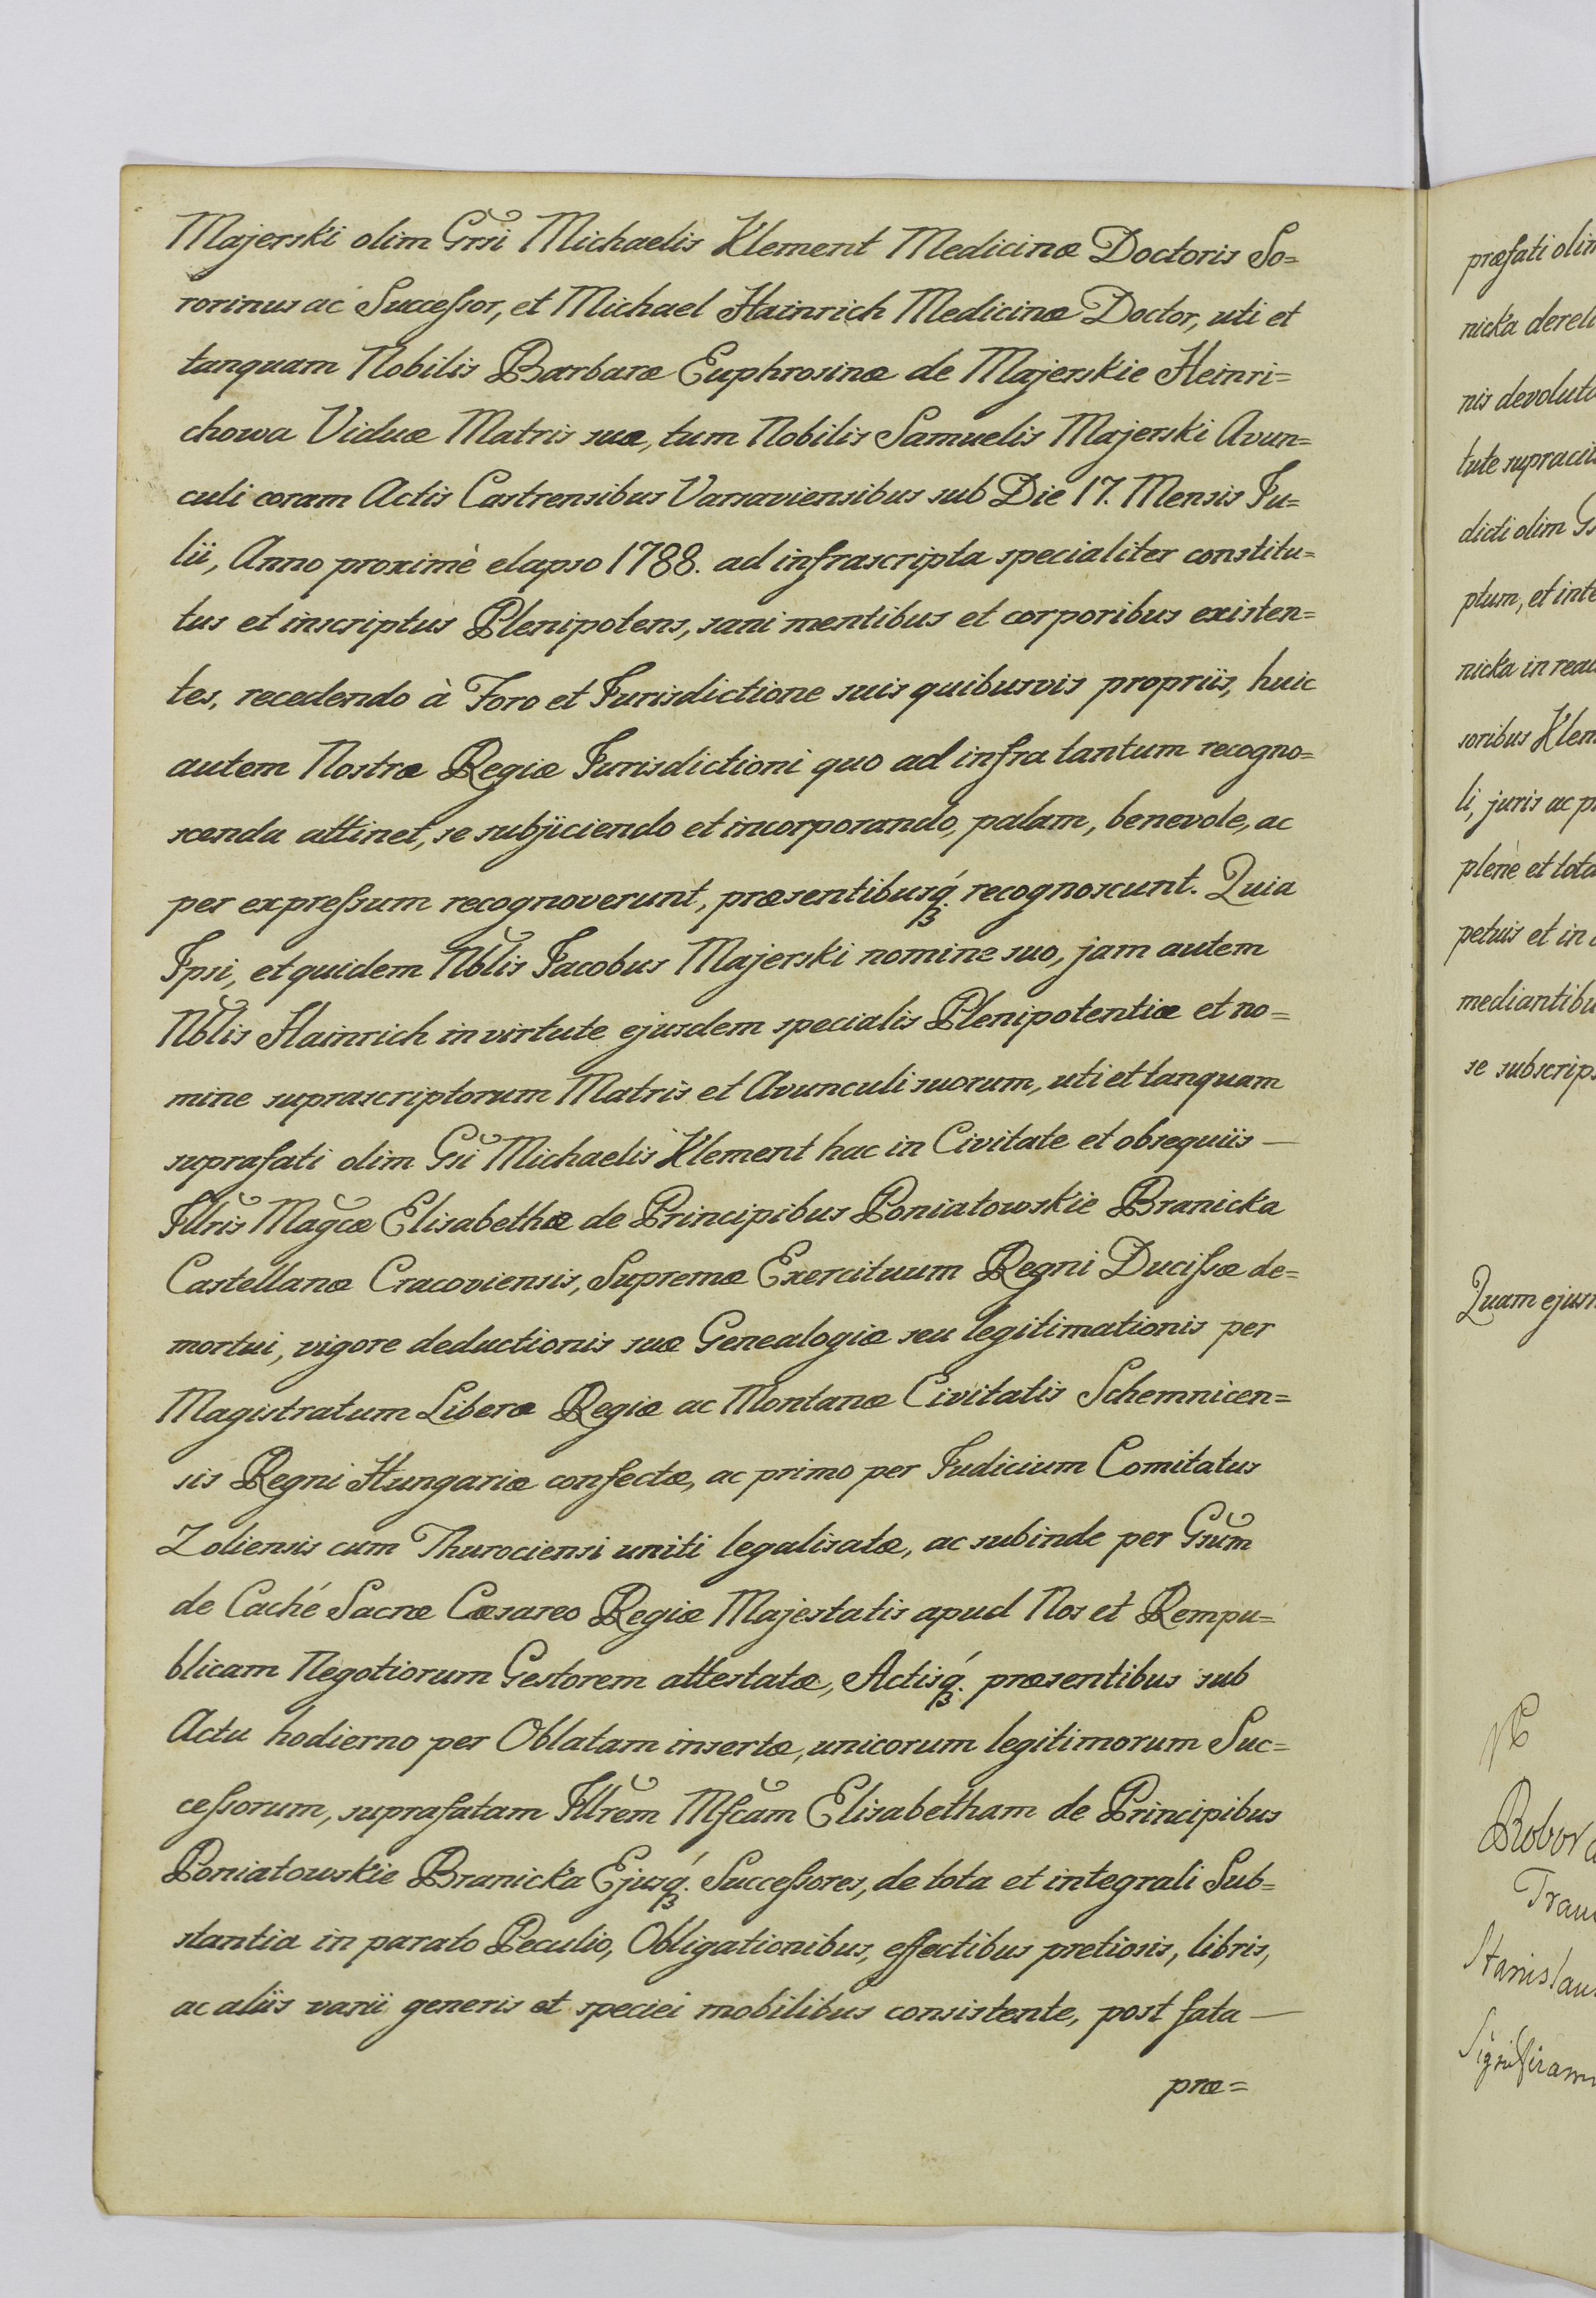 Majerski olim Grsi Michaelis Klement Medicinæ Doctoris So=
rorinus ac Successor, et Michael Hainrich Medicinæ Doctor, uti et
tanquam Nobilis Barbaræ Euphrosinæ de Majerskie Heinri=
chowa Viduæ Matris suæ, tum Nobilis Samuelis Majerski Avun=
culi coram Actis Castrensibus Varsaviensibus sub Die 17. Mensis Ju=
lii, Anno proximè elapso 1788. ad infrascripta specialiter constitu=
tus et inscriptus Plenipotens, sani mentibus et corporibus existen=
tes, recedendo à Foro et Jurisdictione suis quibusvis propriis, huic
autem Nostræ Regiæ Jurisdictioni quo ad infra tantum recogno=
scenda attinet, se subjiciendo et incorporando, palam, benevole, ac
per expressum recognoverunt, præsentibusq́. recognoscunt. Quia
Ipsi, et quidem Nblis Jacobus Majerski nomine suo, jam autem
Nblis Hainrich in virtute ejusdem specialis Plenipotentiæ et no=
mine suprascriptorum Matris et Avunculi suorum, uti et tanquam
suprafati olim Gsi Michaelis Klement hac in Civitate et obsequiis —
Illris Magcæ Elisabethæ de Principibus Poniatowskie Branicka
Castellanæ Cracoviensis, Supremæ Exercituum Regni Ducissæ de=
mortui, vigore deductionis suæ Genealogiæ seu legitimationis per
Magistratum Liberæ Regiæ ac Montanæ Civitatis Schemnicen=
sis Regni Hungariæ confectæ, ac primo per Judicium Comitatus
Zoliensis cum Thurociensi uniti legalisatæ, ac subinde per Gsum
de Caché Sacræ Cæsareo Regiæ Majestatis apud Nos et Rempu=
blicam Negotiorum Gestorem attestatæ, Actisq́. præsentibus sub
Actu hodierno per Oblatam insertæ, unicorum legitimorum Suc=
cessorum, suprafatam Illrem Mfcam Elisabetham de Principibus
Poniatowskie Branicka Ejusq́. Successores, de tota et integrali Sub=
stantia in parato Peculio, Obligationibus, effectibus pretiosis, libris,
ac aliis varii generis et speciei mobilibus consistente, post fata —
præ=
præfati
nicka
nis
tute
dicti olim
ptum, et
nicka in
soribus
li, juris ac
plenè et
petuis et in
se
Quam